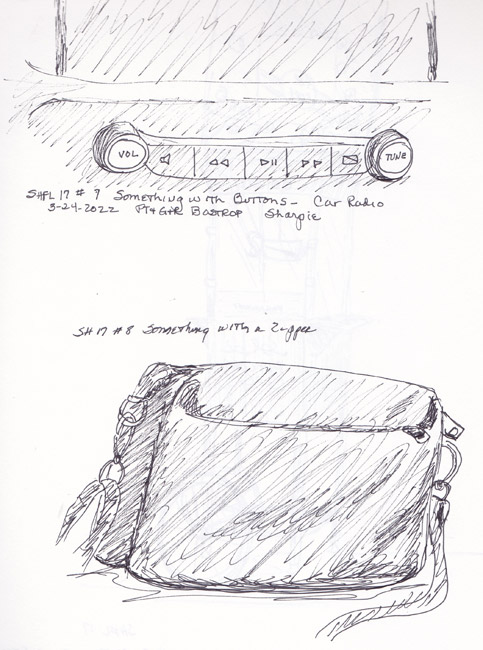 VOL
TUNE
SHPL 17 # 7 Something with Buttons - Car Radio
3-24-2022 Bastrop Sharpie
SH 17 #8 Something with a Zipper